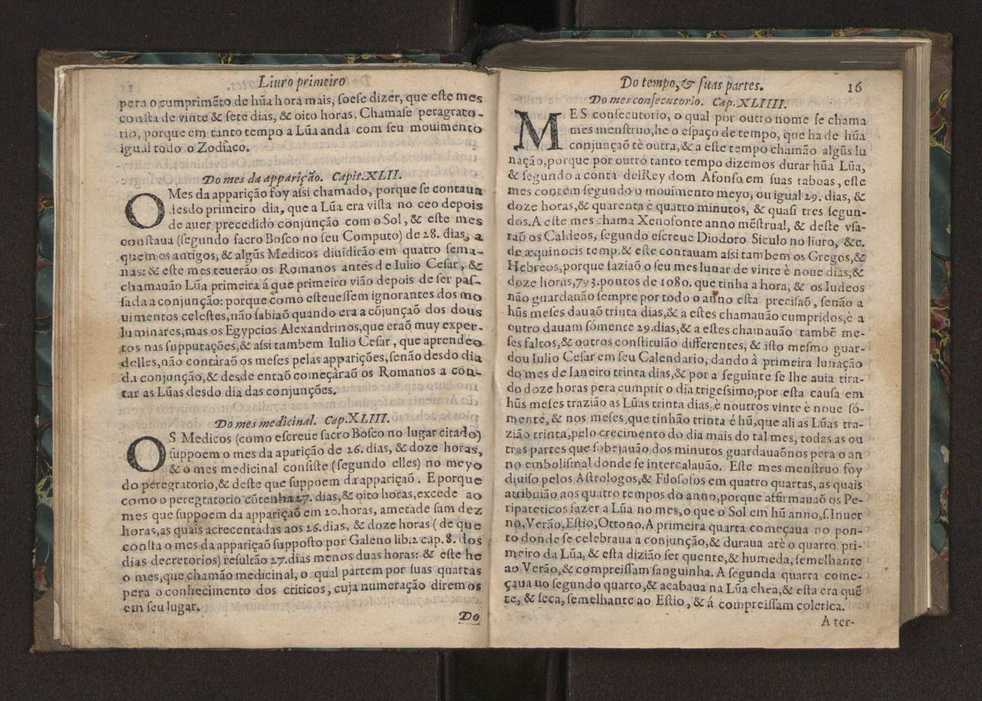 Liuro primeiro
pera o cumprimẽto de hũa hora mais, soese dizer, que este mes
consta de vinte & sete dias, & oito horas. Chamase peragrato-
rio, porque em tanto tempo a Lũa anda com seu mouimento
igual todo o Zodiaco.
Do mes da apparição. Capit. XLII.
O Mes da apparição foy assi chamado, porque se contaua
desdo primeiro dia, que a Lũa era vista no ceo depois
de auer precedido conjunção com o Sol, & este mes
constaua (segundo sacro Bosco no seu Computo) de 28. dias, a
quem os antigos, & algũs Medicos diuidirão em quatro sema-
nas: & este mes teuerão os Romanos antes de Iulio Cesar, &
chamauão Lũa primeira á que primeiro vião depois de ser pas-
sada a conjunção: porque como esteuessem ignorantes dos mo
uimentos celestes, não sabiaõ quando era a cõjunçaõ dos dous
luminares, mas os Egypcios Alexandrinos, que eraõ muy exper-
tos nas supputações, & assi tambem Iulio Cesar, que aprendeo
delles, não contàraõ os meses pelas apparições, senão desdo dia
da conjunção, & desde entaõ começàraõ os Romanos a con-
tar as Lũas desdo dia das conjunções.
Do mes medicinal. Cap. XLIII.
OS Medicos (como escreue sacro Bosco no lugar citado)
suppoem o mes da aparição de 26. dias, & doze horas,
& o mes medicinal consiste (segundo elles) no meyo
do peregratorio, & deste que suppoem da apparição. E porque
como o peregratorio cõtenha 27. dias, & oito horas, excede ao
mes que suppoem da appariçaõ em 20. horas, ametade sam dez
horas, as quais acrecentadas aos 26. dias, & doze horas (de que
consta o mes da appariçaõ supposto por Galeno lib. 2 cap. 8. dos
dias decretorios) resultão 27. dias menos duas horas: & este he
o mes, que chamão medicinal, o qual partem por suas quartas
pera o conhecimento dos criticos, cuja numeração diremos
em seu lugar.
Do
Do tempo, & suas partes. 16
Do mes consecutorio. Cap. XLIIII.
MES consecutorio, o qual por outro nome se chama
mes menstruo, he o espaço de tempo, que ha de hũa
conjunçaõ tè outra, & a este tempo chamão algũs lu
nação, porque por outro tanto tempo dizemos durar hũa Lũa,
& segundo a conta delRey dom Afonso em suas taboas, este
mes contém segundo o mouimento meyo, ou igual 29. dias, &
doze horas, & quarenta & quatro minutos, & quasi tres segun-
dos. A este mes chama Xenofonte anno mẽstrual, & deste vsa-
raõ os Caldeos, segundo escreue Diodoro Siculo no liuro, &c.
de æquinocis temp. & este contauam assi tambem os Gregos, &
Hebreos, porque faziaõ o seu mes lunar de vinte & noue dias, &
doze horas, 793. pontos de 1080. que tinha a hora, & os Iudeos
não guardauão sempre por todo o anno esta precisaõ, senão a
hũs meses dauaõ trinta dias, & a estes chamauão cumpridos, e a
outro dauam sómente 29. dias, & a estes chamauão tambẽ me-
ses faltos, & outros constituião differentes, & isto mesmo guar-
dou Iulio Cesar em seu Calendario, dando á primeira lunação
do mes de Ianeiro trinta dias, & por a seguinte se lhe auia tira-
do doze horas pera cumprir o dia trigesimo, por esta causa em
hũs meses trazião as Lũas trinta dias, & noutros vinte & noue só-
mente, & nos meses, que tinhão trinta & hũ, que ali as Lũas tra-
zião trinta, pelo crecimento do dia mais do tal mes, todas as ou
tras partes que sobejauão dos minutos guardauãnos pera o an
no embolismal donde se intercalauão. Este mes menstruo foy
diuiso pelos Astrologos, & Filosofos em quatro quartas, as quais
atribuião aos quatro tempos do anno, porque affirmauaõ os Pe-
ripateticos fazer a Lũa no mes, o que o Sol em hũ anno, s. Inuer
no, Verão, Estio, Ottono. A primeira quarta começaua no pon-
to donde se celebraua a conjunção, & duraua atè o quarto pri-
meiro da Lũa, & esta dizião ser quente, & humeda, semelhante
ao Verão, & compreissam sanguinha. A segunda quarta come-
çaua no segundo quarto, & acabaua na Lũa chea, & esta era quẽ
te, & seca, semelhante ao Estio, & á compreissam colerica.
A ter-